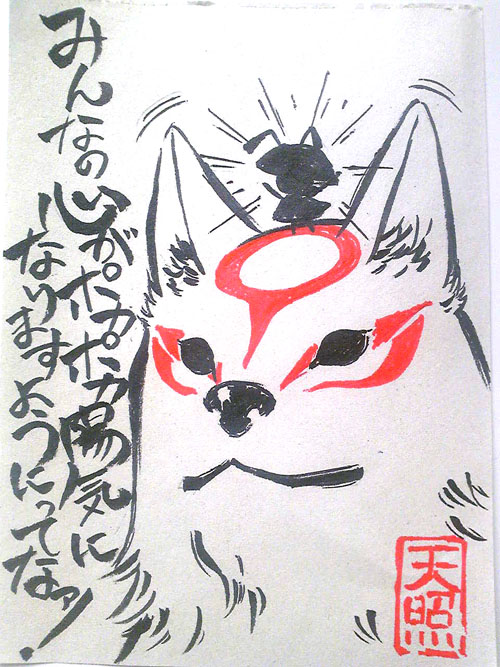 みんなの
心がポカポカ陽気に
なりますようにってなァ!
天照